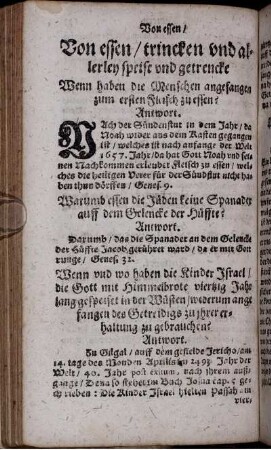 Von essen/
Von essen/trincken vnd al-
lerley speise vnd getrencke
Wenn haben die Menschen angefangen
zum ersten Fleisch zu essen?
Antwort.
NAch der Sündenflut in dem Jahr/ da
Noah wider aus dem Kasten gegangen
ist/ welches ist nach anfange der Welt
1657. Jahr/ da hat Gott Noah vnd sei-
nen Nachkommen erleubet Fleisch zu essen/ wel-
ches die heiligen Veter für der Sündflut nicht ha-
ben thun dörffen/ Genes. 9.
Warumb essen die Jüden keine Spanader
auff dem Gelencke der Hüffte?
Antwort.
Darumb/ das die Spanader an dem Gelencke
der Hüffte Jacob gerühret ward/ da er mit Gott
runge/ Genes. 32.
Wenn vnd wo haben die Kinder Israel/
die Gott mit Himmelbrote viertzig Jahr
lang gespeiset in der Wüsten/widerum ange
fangen des Getreidigs zu jhrer er-
haltung zu gebrauchen?
Antwort.
Zu Gilgal/ auff dem gefielde Jericho/am
14. tage des Monden Aprilis im 2493. Jahr der
Welt/ 40. Jahr post exitum, nach jhrem auß-
gange/ Denn so stehet im Buch Josua cap. 5 ge-
schrieben: Die Kinder Israel hielten Passah/ am
vier-